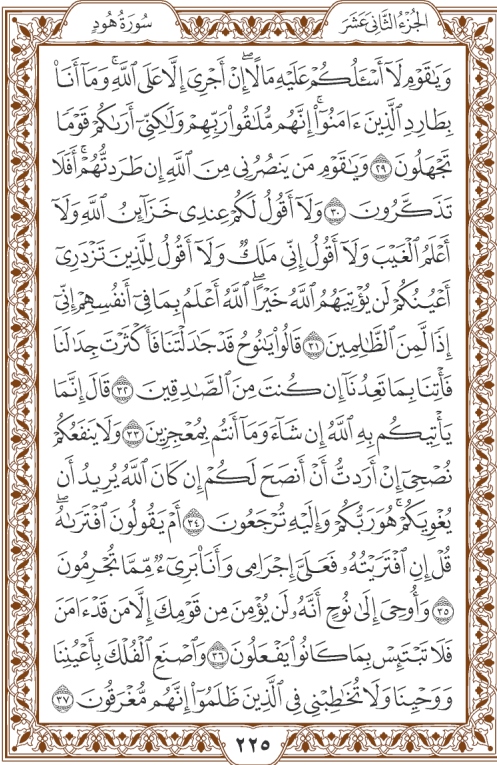 الجُزْءُ الثَّانِي عَشَرَ
سُورَةُ هُودٍ
وَيَٰقَوْمِ لَآ أَسْـَٔلُكُمْ عَلَيْهِ مَالًاۖ إِنْ أَجْرِىَ إِلَّا عَلَى ٱللَّهِۚ وَمَآ أَنَا۠
بِطَارِدِ ٱلَّذِينَ ءَامَنُوٓا۟ۚ إِنَّهُم مُّلَٰقُوا۟ رَبِّهِمْ وَلَٰكِنِّىٓ أَرَىٰكُمْ قَوْمًا
تَجْهَلُونَ ٢٩ وَيَٰقَوْمِ مَن يَنصُرُنِى مِنَ ٱللَّهِ إِن طَرَدتُّهُمْۚ أَفَلَا
تَذَكَّرُونَ ٣٠ وَلَآ أَقُولُ لَكُمْ عِندِى خَزَآئِنُ ٱللَّهِ وَلَآ
أَعْلَمُ ٱلْغَيْبَ وَلَآ أَقُولُ إِنِّى مَلَكٌ وَلَآ أَقُولُ لِلَّذِينَ تَزْدَرِىٓ
أَعْيُنُكُمْ لَن يُؤْتِيَهُمُ ٱللَّهُ خَيْرًاۖ ٱللَّهُ أَعْلَمُ بِمَا فِىٓ أَنفُسِهِمْ إِنِّىٓ
إِذًا لَّمِنَ ٱلظَّٰلِمِينَ ٣١ قَالُوا۟ يَٰنُوحُ قَدْ جَٰدَلْتَنَا فَأَكْثَرْتَ جِدَٰلَنَا
فَأْتِنَا بِمَا تَعِدُنَآ إِن كُنتَ مِنَ ٱلصَّٰدِقِينَ ٣٢ قَالَ إِنَّمَا
يَأْتِيكُم بِهِ ٱللَّهُ إِن شَآءَ وَمَآ أَنتُم بِمُعْجِزِينَ ٣٣ وَلَا يَنفَعُكُمْ
نُصْحِىٓ إِنْ أَرَدتُّ أَنْ أَنصَحَ لَكُمْ إِن كَانَ ٱللَّهُ يُرِيدُ أَن
يُغْوِيَكُمْۚ هُوَ رَبُّكُمْ وَإِلَيْهِ تُرْجَعُونَ ٣٤ أَمْ يَقُولُونَ ٱفْتَرَىٰهُۖ
قُلْ إِنِ ٱفْتَرَيْتُهُۥ فَعَلَىَّ إِجْرَامِى وَأَنَا۠ بَرِىٓءٌ مِّمَّا تُجْرِمُونَ
٣٥ وَأُوحِىَ إِلَىٰ نُوحٍ أَنَّهُۥ لَن يُؤْمِنَ مِن قَوْمِكَ إِلَّا مَن قَدْ ءَامَنَ
فَلَا تَبْتَئِسْ بِمَا كَانُوا۟ يَفْعَلُونَ ٣٦ وَٱصْنَعِ ٱلْفُلْكَ بِأَعْيُنِنَا
وَوَحْيِنَا وَلَا تُخَٰطِبْنِى فِى ٱلَّذِينَ ظَلَمُوٓا۟ۚ إِنَّهُم مُّغْرَقُونَ ٣٧
٢٢٥